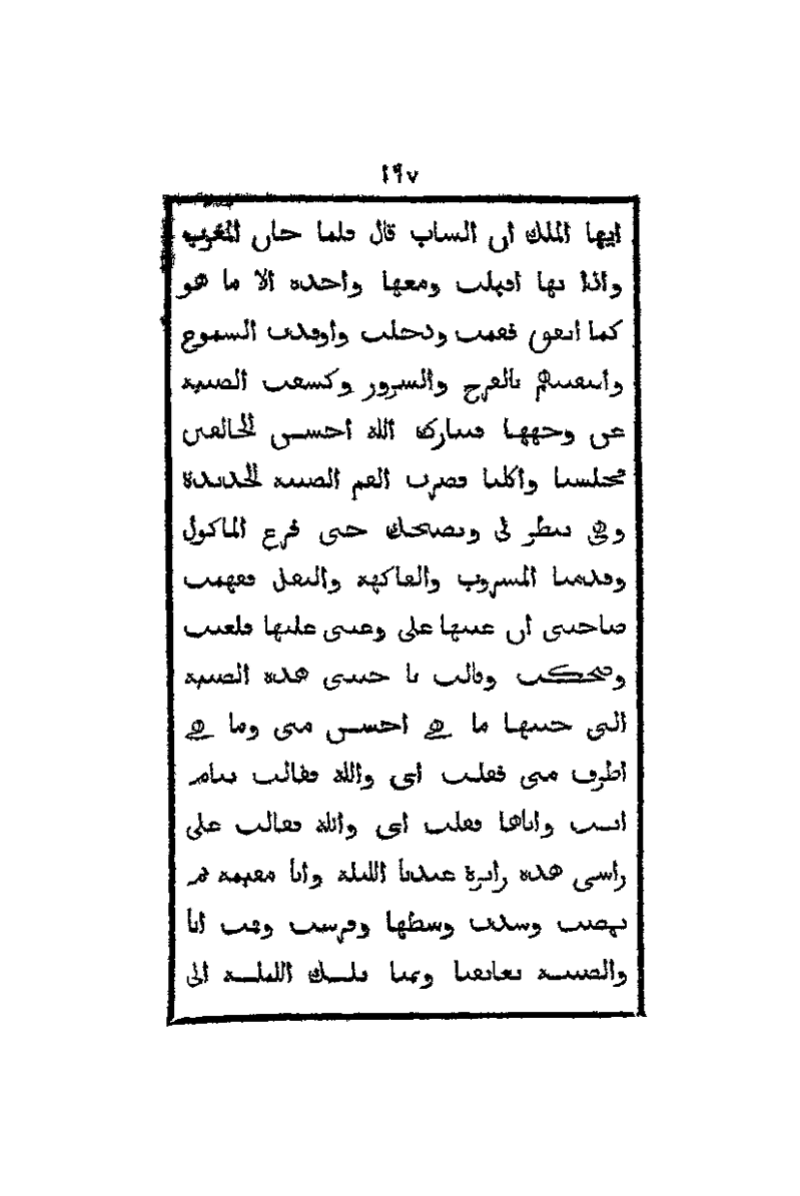 ١٩٧
ايها الملك ان الشاب قال فلما حان المغرب
واذا بها اقبلت ومعها واحدة الا ما هو
كما اتفق فقمت ودخلت واوقدت الشموع
بالفرح والسرور وكشفت الصبية
عن وجهها فتبارك الله احسن الخالقين
فجلسنا واكلنا فصرت القم الصبية الجديدة
وهي تنظر لي وتضحك حتى فرغ الماكول
وقدمنا المشروب والفاكهة والنقل ففهمت
صاحبتي ان عينها علي وعيني عليها فلعبت
وضحكت وقالت يا حبيبي هذه الصبية
التي جبتها ما هي احسن مني وما هي
اظرف مني فقلت اي والله فقالت تنام
انت واياها فقلت اي والله فقالت على
راسي هذه زايرة عندنا الليلة وانا مقيمة ثم
نهضت وشدت وسطها وفرشت ونمت انا
والصبية تعانقنا ونمنا تلك الليلة الى